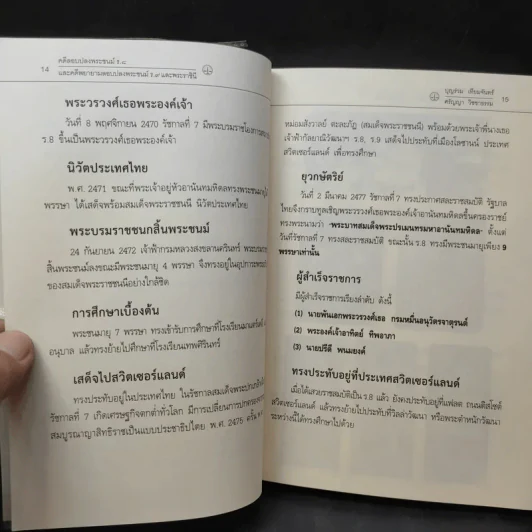 คดีลอบปลงพระชนม์ ร.๘
14 และคดีพยายามลอบปลงพระชนม์ ร.๙ และพระราชินี
พระวรวงศ์เธอพระองค์เจ้า
วันที่ 8 พฤศจิกายน 2470 รัชกาลที่ 7 มีพระบรมราชโองการ
ร.8 ขึ้นเป็นพระวรวงศ์เธอพระองค์เจ้า
นิวัตประเทศไทย
พ.ศ. 2471 ขณะที่พระเจ้าอยู่หัวอานันทมหิดลทรงพระชนมายุ
พรรษา ได้เสด็จพร้อมสมเด็จพระราชชนนี นิวัตประเทศไทย
พระบรมราชชนกสิ้นพระชนม์
24 กันยายน 2472 เจ้าฟ้ากรมหลวงสงขลานครินทร์ พระบรม
สิ้นพระชนม์ลงขณะมีพระชนมายุ 4 พรรษา จึงทรงอยู่ในอุปการะ
ของสมเด็จพระราชชนนีอย่างใกล้ชิด
การศึกษาเบื้องต้น
พระชนมายุ 7 พรรษา ทรงเข้ารับการศึกษาที่โรงเรียนมาแตร์
อนุบาล แล้วทรงย้ายไปศึกษาที่โรงเรียนเทพศิรินทร์
เสด็จไปสวิตเซอร์แลนด์
ทรงประทับอยู่ในประเทศไทย ในรัชกาลสมเด็จพระปกเกล้า
รัชกาลที่ 7 เกิดเศรษฐกิจตกต่ำทั่วโลก มีการเปลี่ยนการปกครอง
สมบูรณาญาสิทธิราชเป็นแบบประชาธิปไตย พ.ศ. 2475 ครั้น
บุญร่วม เทียมจันทร์
ศรัญญา วิชชาธรรม 15
หม่อมสังวาลย์ ตะละภัฎ (สมเด็จพระราชชนนี) พร้อมด้วยพระเจ้าพี่นางเธอ
เจ้าฟ้ากัลยาณิวัฒนาฯ ร.8, ร.9 เสด็จไปประทับที่เมืองโลซานน์ ประเทศ
สวิตเซอร์แลนด์ เพื่อทรงศึกษา
ยุวกษัตริย์
วันที่ 2 มีนาคม 2477 รัชกาลที่ 7 ทรงประกาศสละราชสมบัติ รัฐบาล
ไทยจึงกราบทูลเชิญพระวรวงศ์เธอพระองค์เจ้าอานันทมหิดลขึ้นครองราชย์
ทรงพระนามว่า "พระบาทสมเด็จพระปรเมนทรมหาอานันทมหิดล" ตั้งแต่
วันที่รัชกาลที่ 7 ทรงสละราชสมบัติ ขณะนั้น ร.8 ทรงมีพระชนมายุเพียง 9
พรรษาเท่านั้น
ผู้สำเร็จราชการ
มีผู้สำเร็จราชการเรียงลำดับ ดังนี้
(1) นายพันเอกพระวรวงศ์เธอ กรมหมื่นอนุวัตรจาตุรนต์
(2) พระองค์เจ้าอาทิตย์ ทิพอาภา
(3) นายปรีดี พนมยงค์
ทรงประทับอยู่ที่ประเทศสวิตเซอร์แลนด์
เมื่อได้เสวยราชสมบัติเป็น ร.8 แล้ว ยังคงประทับอยู่ที่แฟลต ถนนติสโซต์
สวิตเซอร์แลนด์ แล้วทรงย้ายไปประทับที่วิลล่าวัฒนา หรือพระตำหนักวัฒนา
ระหว่างนี้ได้ทรงศึกษาไปด้วย